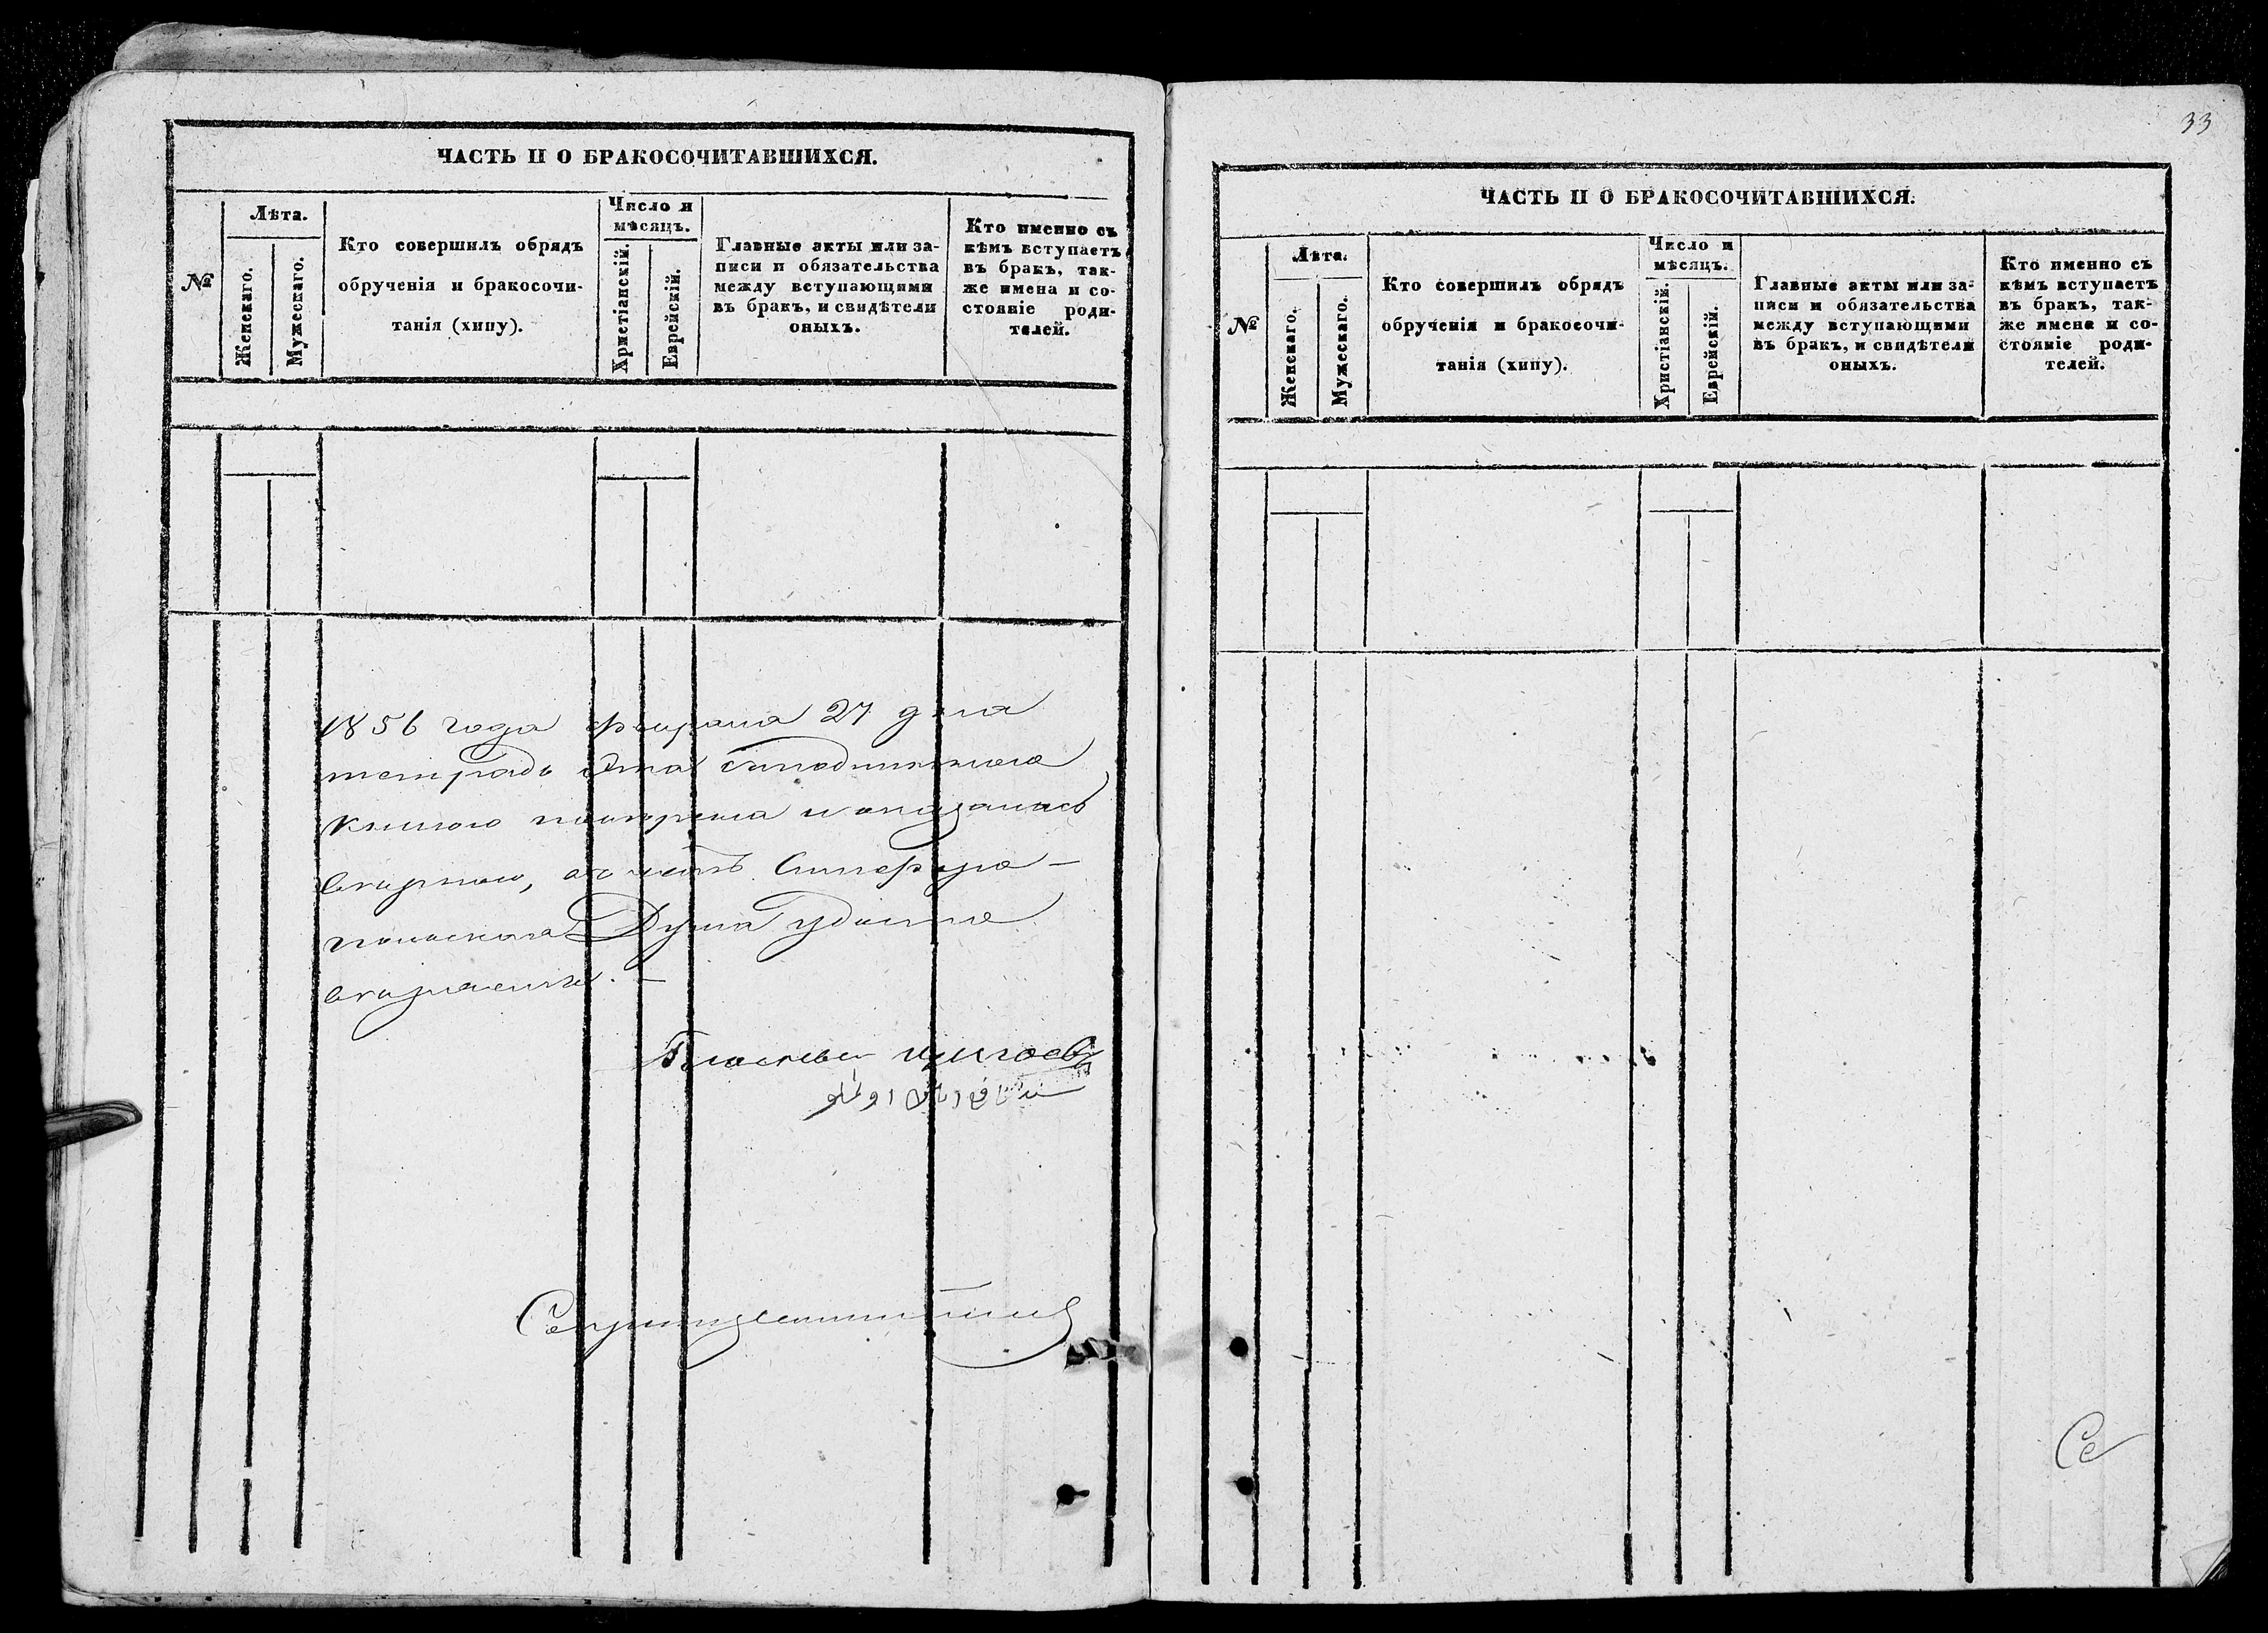 ЧАСТЬ II О БРАКОСОЧИТАВШИХСЯ.
№
Лѣта.
Женскаго.
Мужескаго.
Кто совершилъ обрядъ
обрученія и бракосочи-
танія (хипу).
Число и
мѣсяцъ.
Христіанскій.
Еврейскій.
Главные акты или за-
писи и обязательства
между вступающими
въ бракъ, и свидѣтели
оныхъ.
Кто именно съ
кѣмъ вступаетъ
въ бракъ, так-
же имена и со-
стояніе роди-
телей.
1856 года февраля 27 дня
тетрадь эта
книгою повѣрена и оказалась
вѣрною, въ чемъ Симферо-
польская Дума
Гласный
33
ЧАСТЬ II О БРАКОСОЧИТАВШИХСЯ.
№
Лѣта.
Женскаго.
Мужескаго.
Кто совершилъ обрядъ
обрученія и бракосочи-
танія (хипу).
Число и
мѣсяцъ.
Христіанскій.
Еврейскій.
Главные акты или за-
писи и обязательства
между вступающими
въ бракъ, и свидѣтели
оныхъ.
Кто именно съ
кѣмъ вступаетъ
въ бракъ, так-
же имена и со-
стояніе роди-
телей.
Се